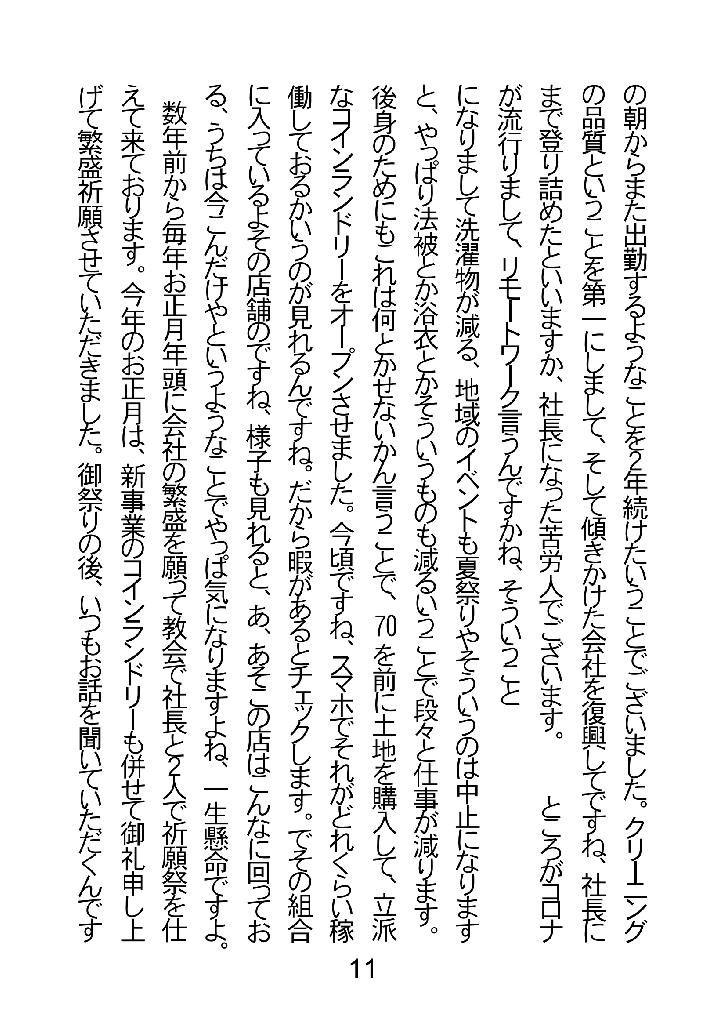 の朝からまた出勤するようなことを2年続けたいうことでございました。クリーニング
の品質ということを第一にしまして、そして傾きかけた会社を復興してですね、社長に
まで登り詰めたといいますか、社長になった苦労人でございます。　ところがコロナ
が流行りまして、リモートワーク言うんですかね、そういうこと
になりまして洗濯物が減る、地域のイベントも夏祭りやそういうのは中止になります
と、やっぱり法被とか浴衣とかそういうものも減るいうことで段々と仕事が減ります。
後身のためにもこれは何とかせないかん言うことで、70を前に土地を購入して、立派
なコインランドリーをオープンさせました。今頃ですね、スマホでそれがどれくらい稼
働しておるかいうのが見れるんですね。だから暇があるとチェックします。でその組合
に入っているよその店舗のですね、様子も見れると、あ、あそこの店はこんなに回ってお
る、うちは今こんだけやというようなことでやっぱ気になりますよね、一生懸命ですよ。
数年前から毎年お正月年頭に会社の繁盛を願って教会で社長と2人で祈願祭を仕
えて来ております。今年のお正月は、新事業のコインランドリーも併せて御礼申し上
げて繁盛祈願させていただきました。御祭りの後、いつもお話を聞いていただくんです
11